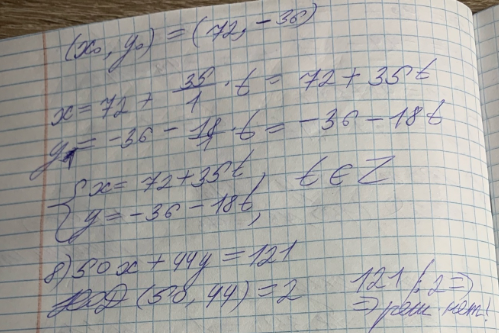 (x₀, y₀) = (72, -36)
x = 72 + 35/1 · t = 72 + 35t
y = -36 - 18/1 · t = -36 - 18t
{ x = 72 + 35t, t ∈ Z
y = -36 - 18t,
8) 50x + 44y = 121
НОД (50, 44) = 2 121 ⋮̸ 2 ⇒
⇒ реш. нет!